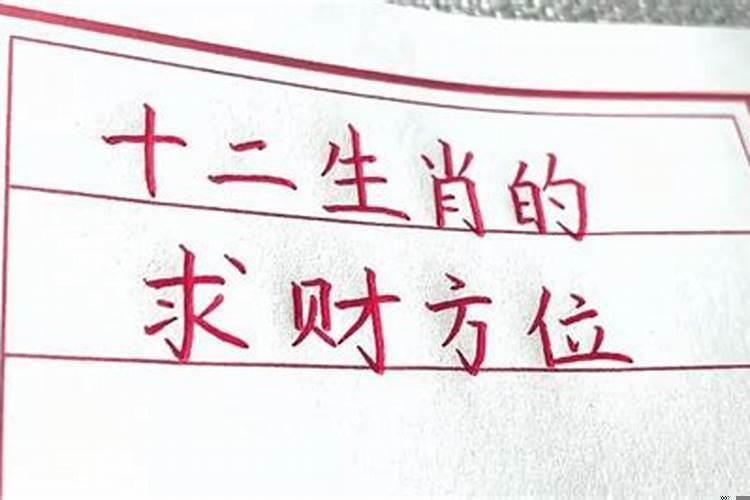 十二生肖的
求财方位